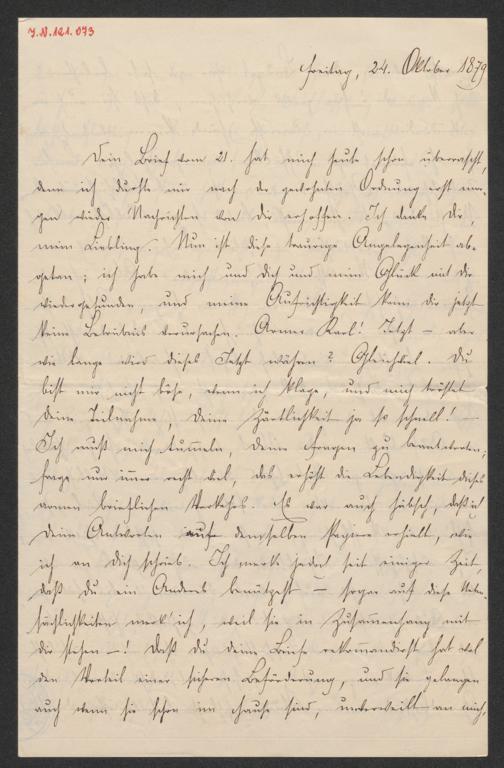 I.N. 121.073
Freitag, 24. Oktober 1879
Dein Brief vom 21. hat mich heute schon überrascht,
denn ich durfte mir nach der gewohnten Ordnung erst mor-
gen wieder Nachrichten von Dir erhoffen. Ich danke Dir,
mein Liebling. Nun ist diese traurige Angelegenheit ab-
getan; ich habe mich und Dich und mein Glück mit Dir
wiedergefunden, und meine Aufrichtigkeit kann Dir jetzt
keine Betrübnis verursachen. Armer Karl! Jetzt – aber
wie lange wird dieses Jetzt währen? Gleichviel. Du
bist mir nicht böse, wenn ich klage, und mich tröstet
Deine Teilnahme, Deine Zärtlichkeit ja so schnell! –
Ich muß mich tummeln, Deine Fragen zu beantworten;
frage nur immer recht viel, das erhöht die Lebendigkeit dieses
armen brieflichen Verkehrs. Es war auch hübsch, daß ich
Deine Antworten auf demselben Papiere erhielt, wie
ich an Dich schrieb. Ich merke jedoch seit einiger Zeit,
daß Du ein Anderes benützest – sogar auf diese Neben-
sächlichkeiten merk' ich, weil sie in Zusammenhang mit
Dir stehen –! Daß Du Deine Briefe rekommandirst hat wol
den Vorteil einer sicheren Beförderung, und sie gelangen
auch wenn sie schon im Hause sind, unverweilt an mich,